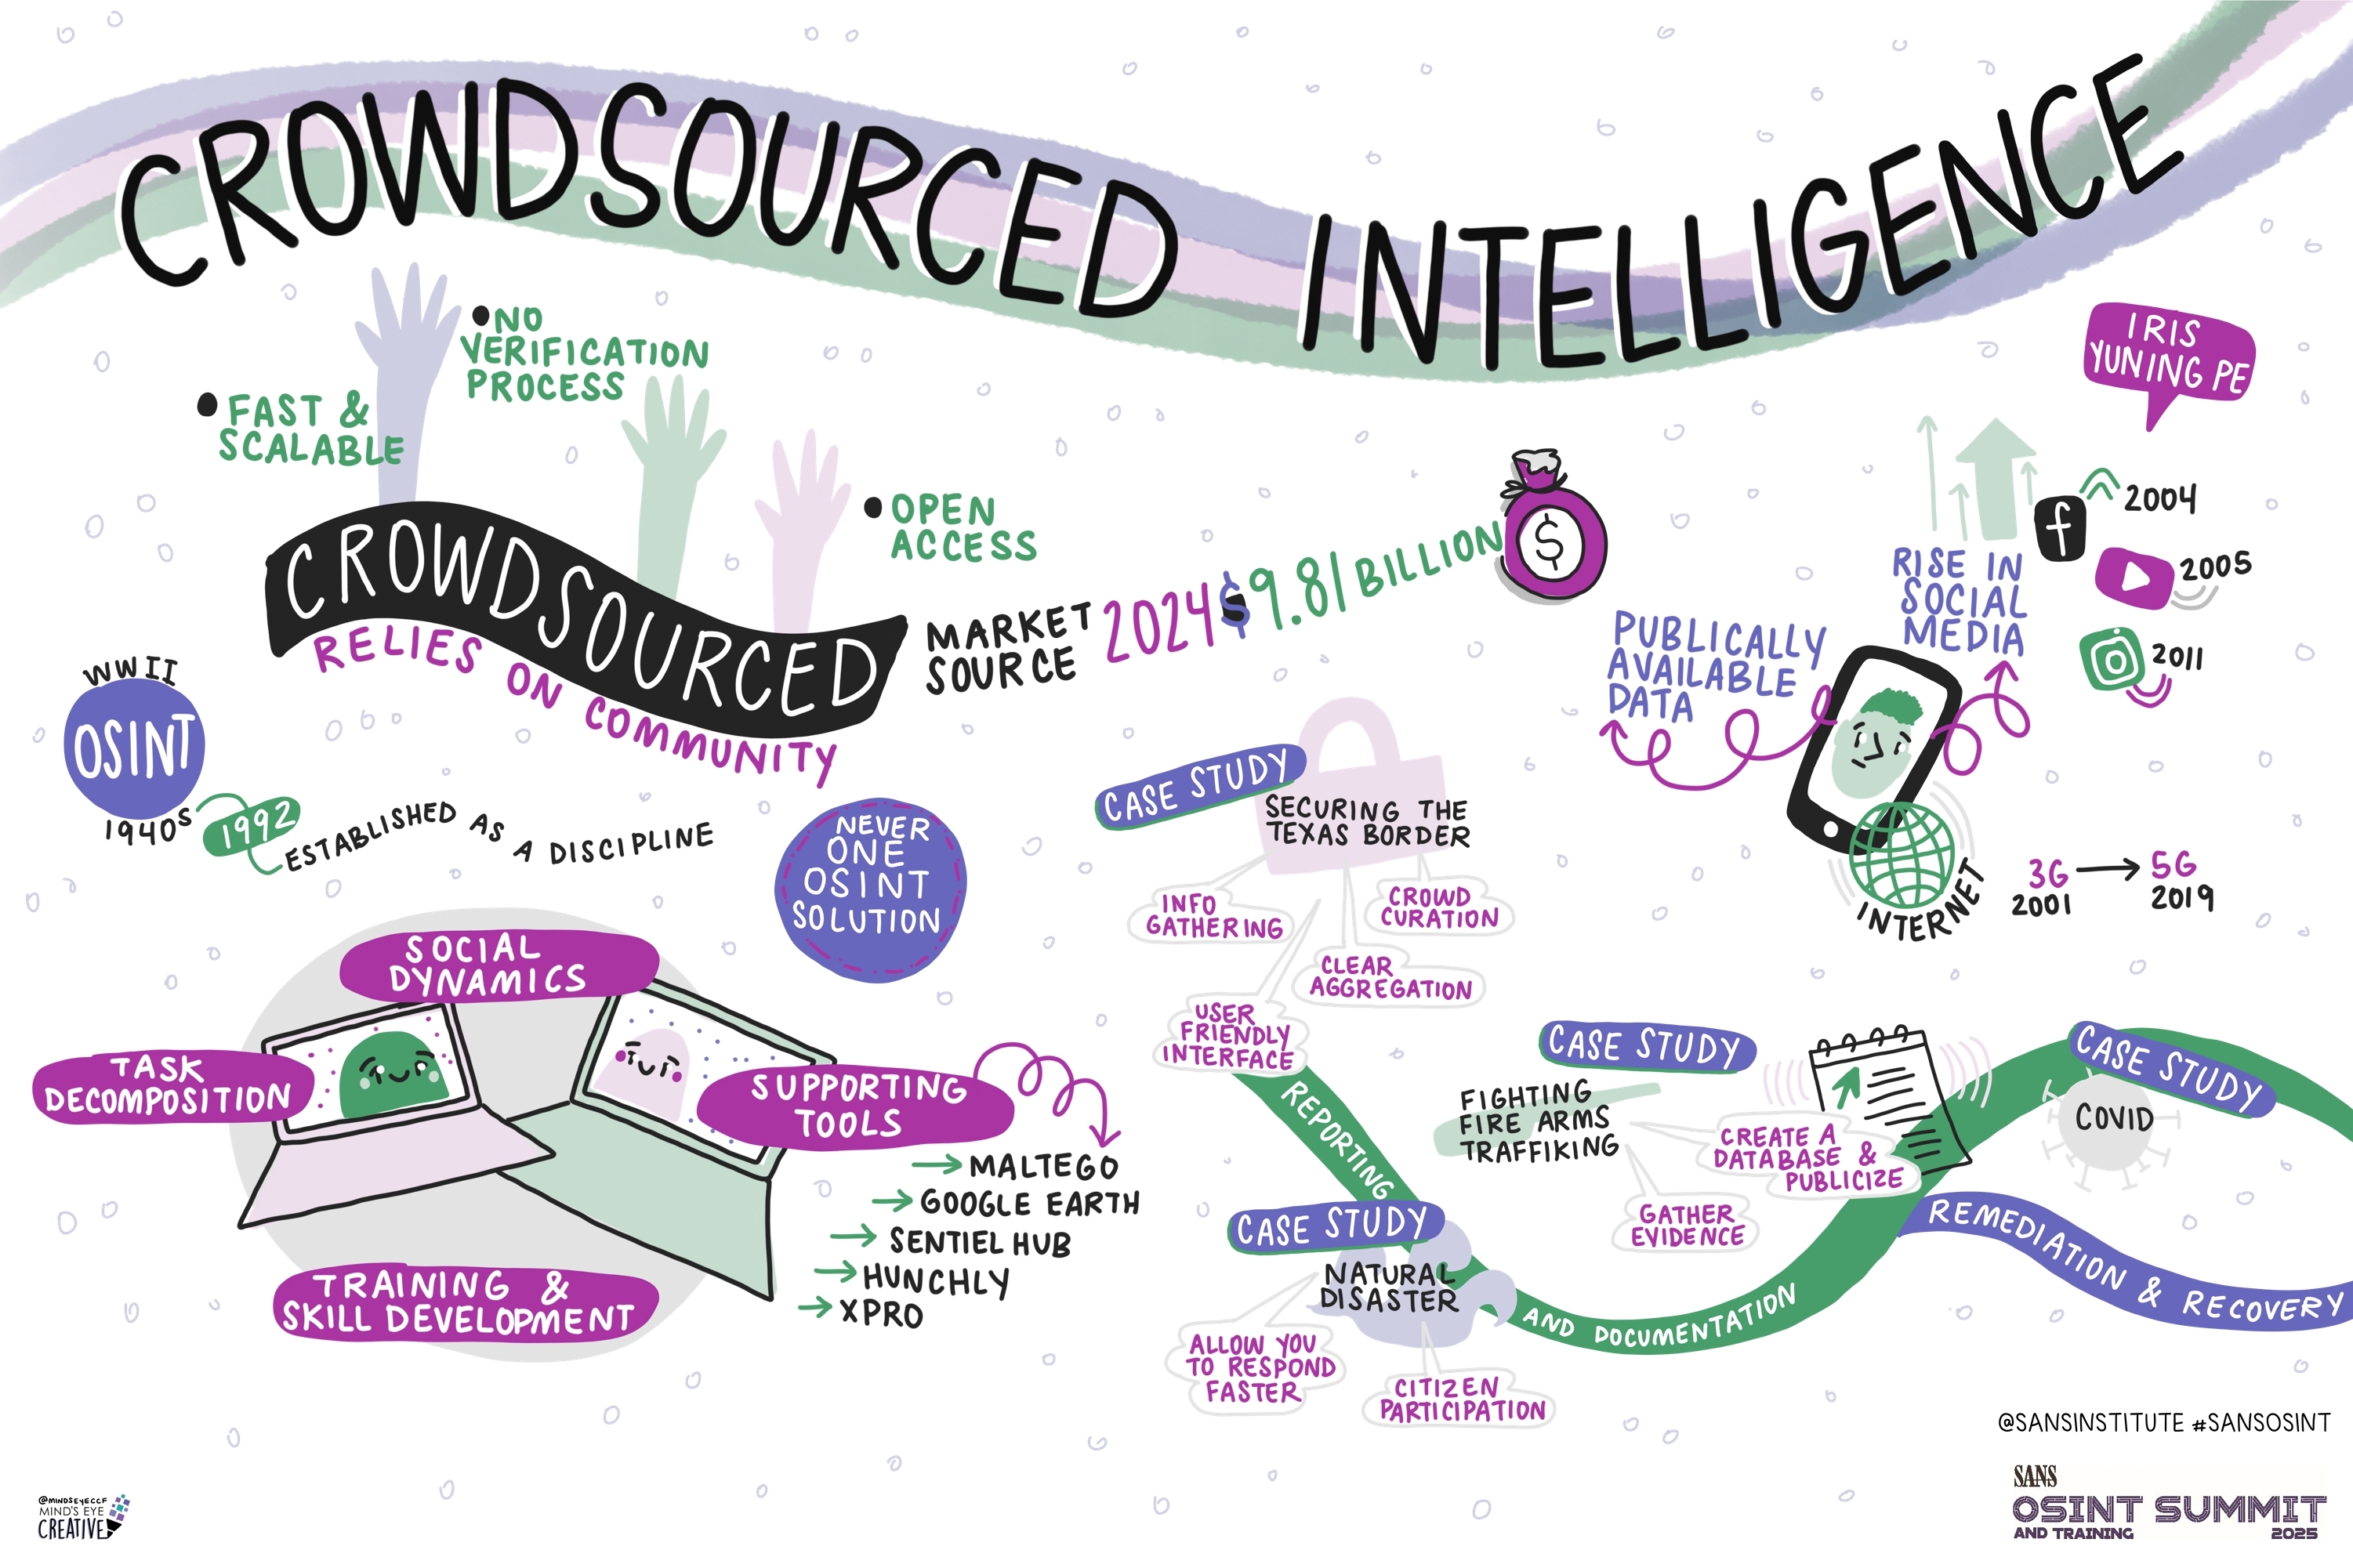 CROWDSOURCED INTELLIGENCE
IRIS
YUNING PE
NO
VERIFICATION
PROCESS
FAST &
SCALABLE
OPEN
ACCESS
CROWDSOURCED
RELIES ON COMMUNITY
MARKET
SOURCE
2024 $9.81 BILLION
$
WWII
OSINT
1940s
1992
ESTABLISHED AS A DISCIPLINE
NEVER
ONE
OSINT
SOLUTION
PUBLICALLY
AVAILABLE
DATA
RISE IN
SOCIAL
MEDIA
f
2004
2005
2011
INTERNET
3G
2001
5G
2019
SOCIAL
DYNAMICS
TASK
DECOMPOSITION
SUPPORTING
TOOLS
TRAINING &
SKILL DEVELOPMENT
MALTEGO
GOOGLE EARTH
SENTIEL HUB
HUNCHLY
XPRO
CASE STUDY
SECURING THE
TEXAS BORDER
INFO
GATHERING
CROWD
CURATION
CLEAR
AGGREGATION
USER
FRIENDLY
INTERFACE
REPORTING
AND DOCUMENTATION
CASE STUDY
NATURAL
DISASTER
ALLOW YOU
TO RESPOND
FASTER
CITIZEN
PARTICIPATION
CASE STUDY
FIGHTING
FIRE ARMS
TRAFFIKING
CREATE A
DATABASE &
PUBLICIZE
GATHER
EVIDENCE
CASE STUDY
COVID
REMEDIATION & RECOVERY
@SANSINSTITUTE #SANSOSINT
SANS
OSINT SUMMIT
AND TRAINING 2025
@MINDSEYECCF
MIND'S EYE
CREATIVE